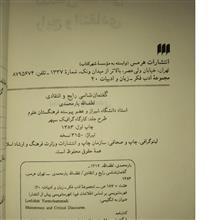 انتشارات هرمس (وابسته به مؤسسهٔ شهر کتاب)
تهران، خیابان ولی عصر، بالاتر از میدان ونک، شمارهٔ ۱۳۳۷ ـ تلفن: ۸۷۹۵۶۷۴
مجموعهٔ ادب فکر ـ زبان و ادبیات ۲۰
گفتمان‌شناسی رایج و انتقادی
لطف‌الله یارمحمدی
استاد دانشگاه شیراز و عضو پیوسته فرهنگستان علوم
طرح جلد: کارگاه گرافیک سپهر
چاپ اول: ۱۳۸۳
تیراژ: ۳۱۵۰ نسخه
لیتوگرافی، چاپ و صحافی: سازمان چاپ و انتشارات وزارت فرهنگ و ارشاد
همهٔ حقوق محفوظ است.
یارمحمدی، لطف‌الله، ۱۳۱۲ ـ
گفتمان‌شناسی رایج و انتقادی / لطف‌الله یارمحمدی. ـ تهران: هرمس،
۱۳۸۳
Lotfollah Yarmohammadi
Mainstream and Critical Discourse